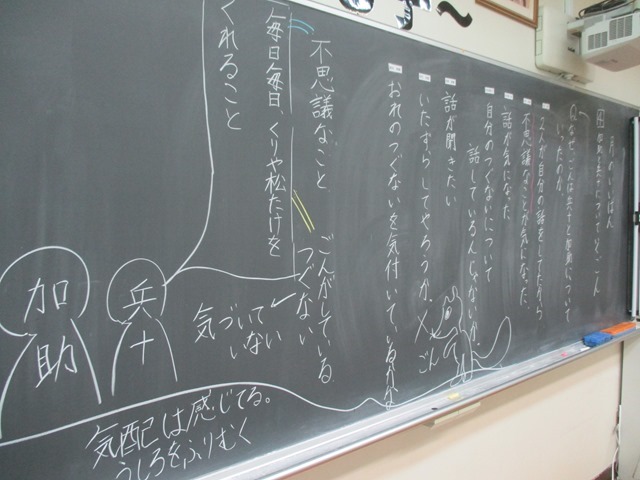 月のいいばん
Q なぜ、ごんは兵十と加助について
いったのか。
が自分の話をしてたから
不思議なことが気になった
話が気になった
自分のつぐないについて
話しているんじゃないか
話が聞きたい
いたずらしてやろうか
おれのつぐないを気付いているかな
ごん
不思議なこと
ごんがしている
つぐない
気づいて
いない
毎日毎日、くりや松たけを
くれること
兵十
加助
気配は感じてる。
うしろをふりむく